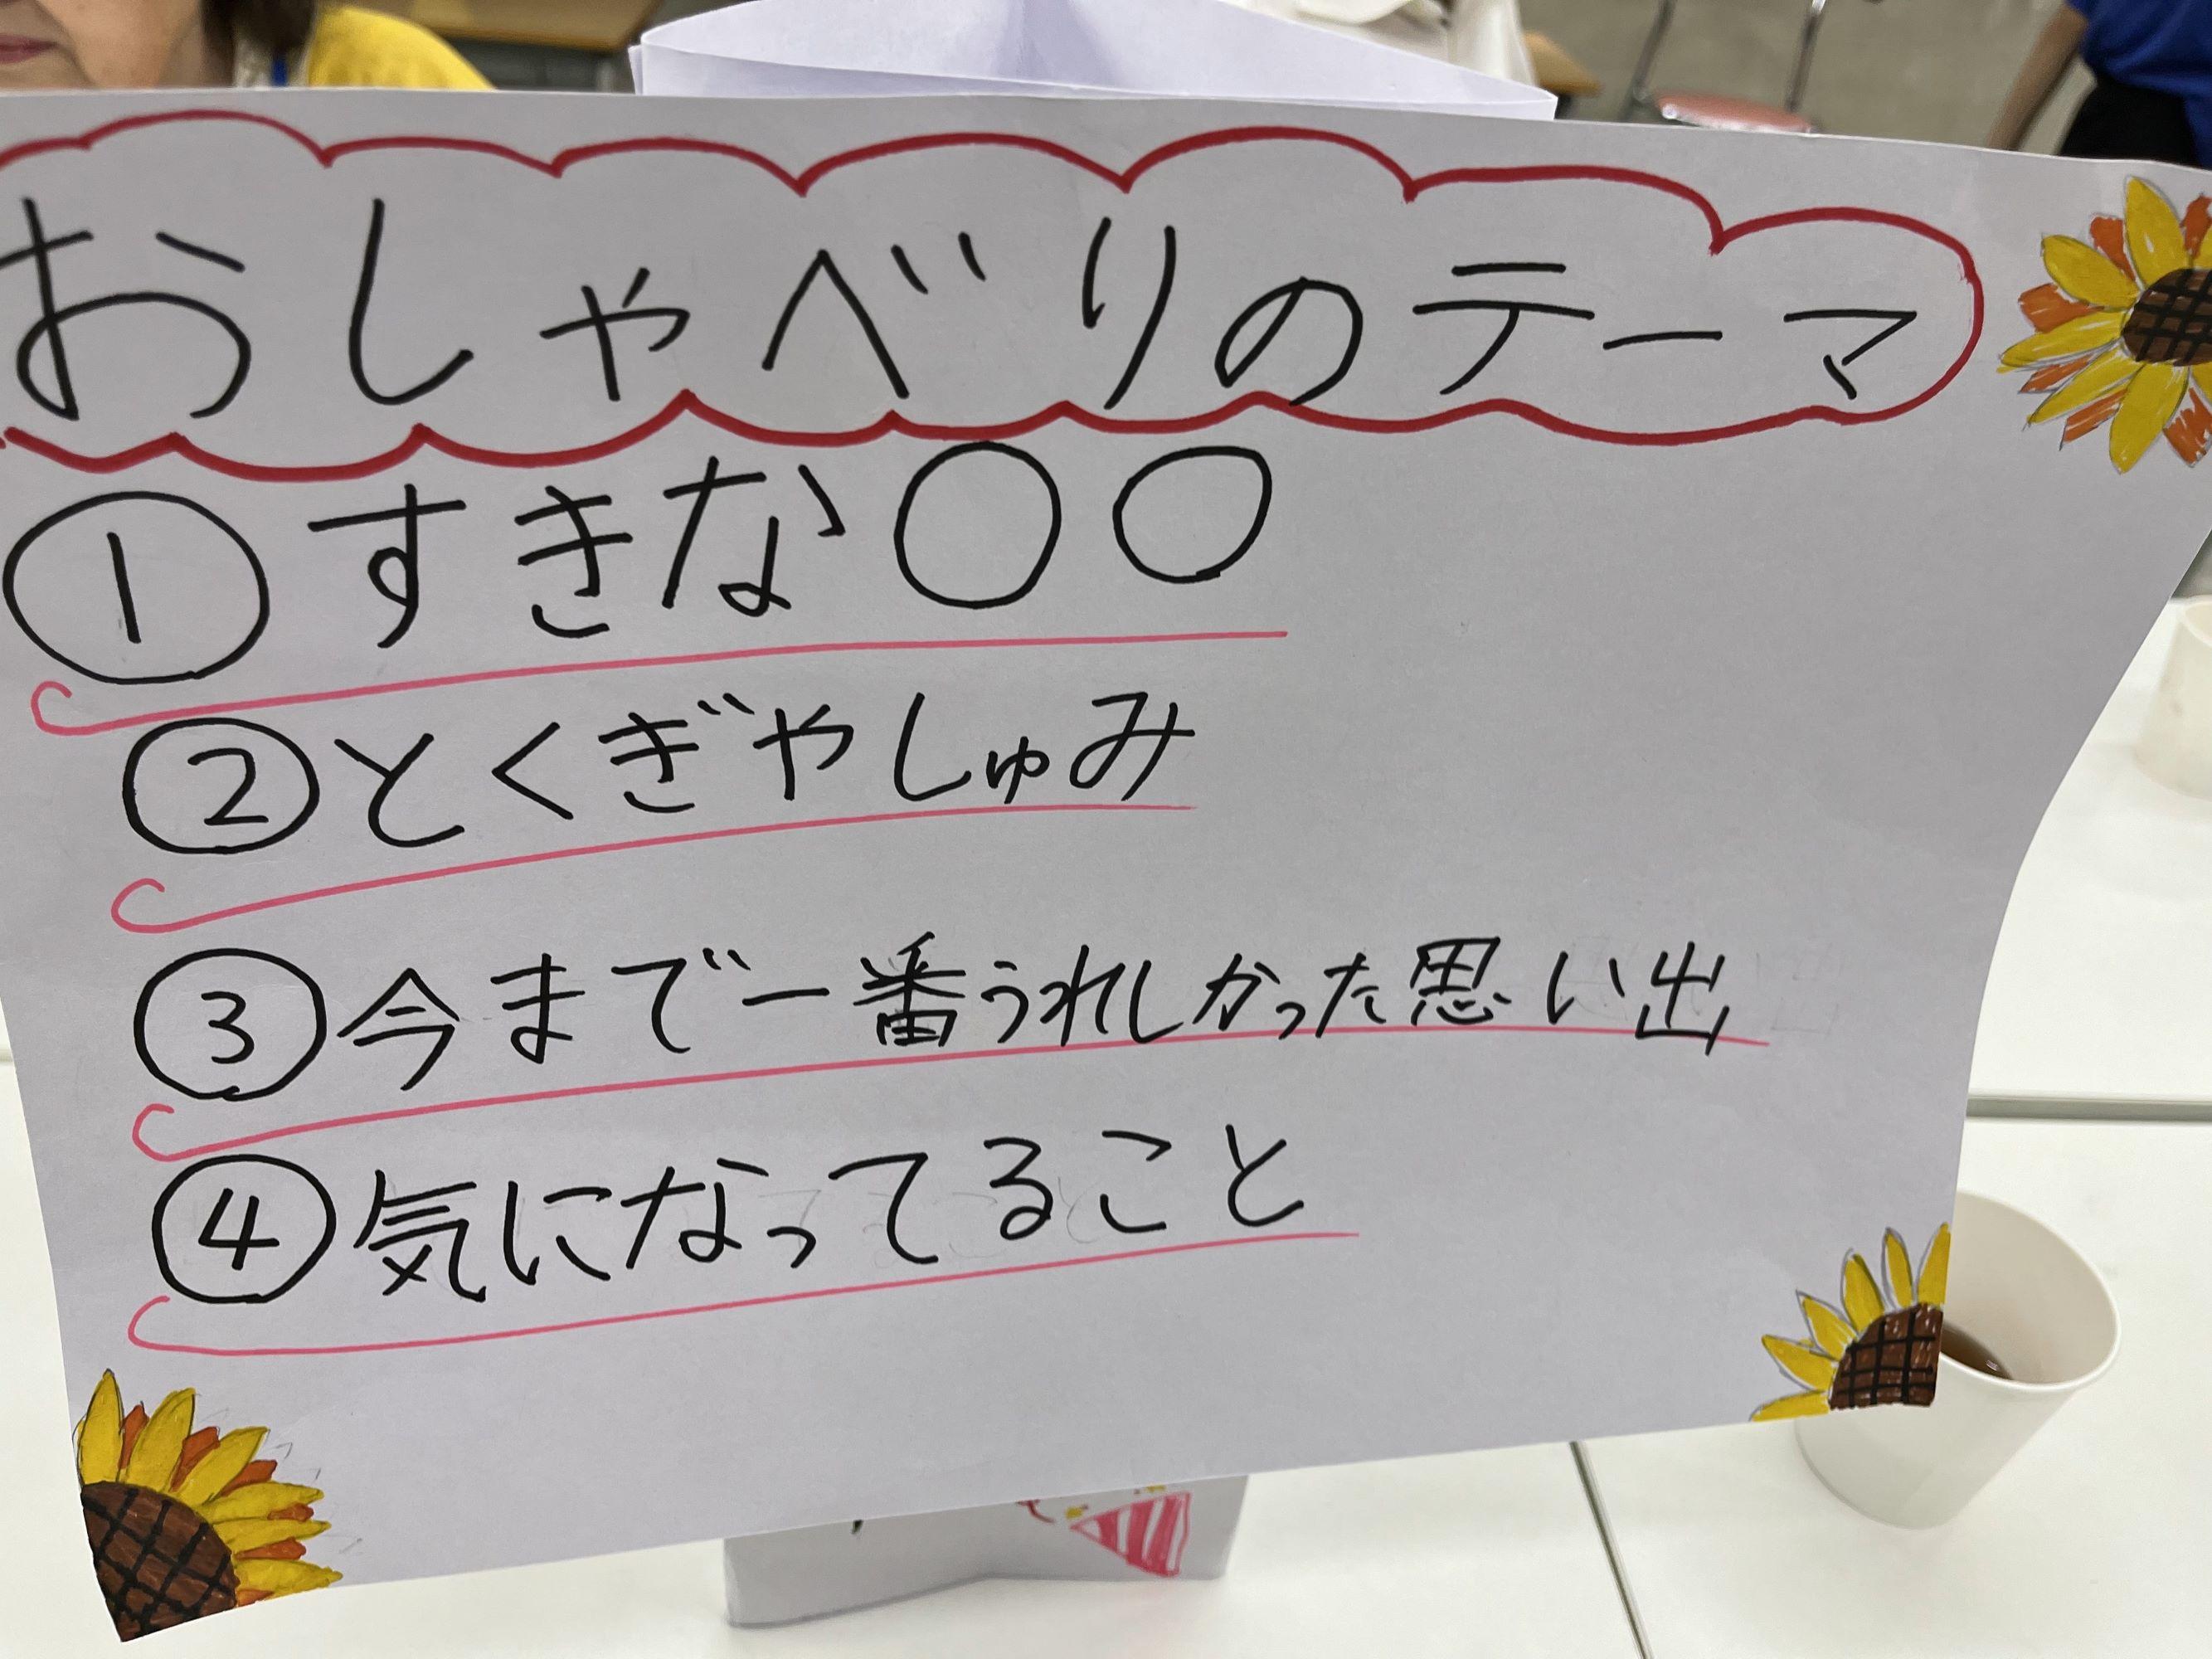 おしゃべりのテーマ
①すきな○○
②とくぎやしゅみ
③今まで一番うれしかった思い出
④気になってること